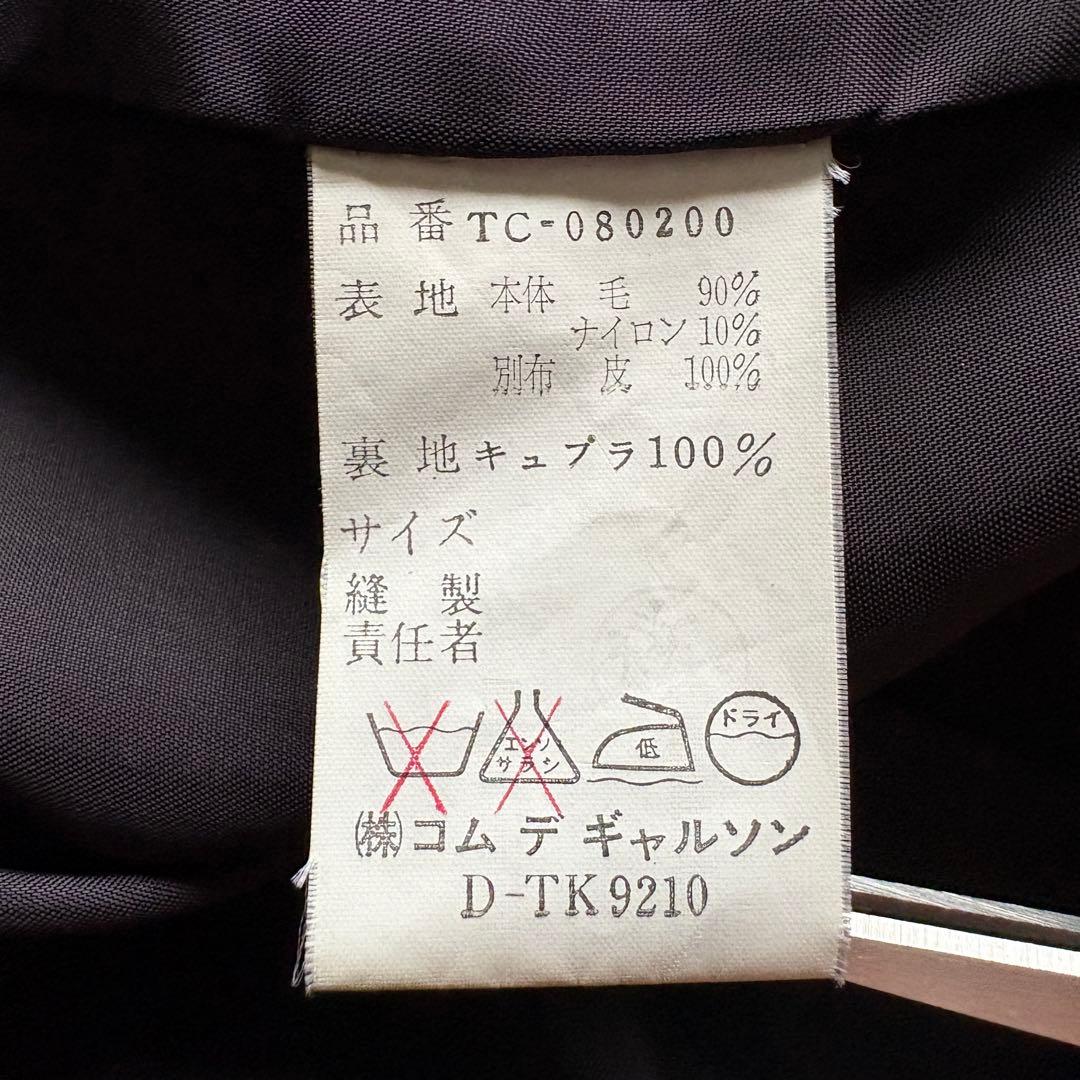 品番 TC-080200
表地 本体 毛 90%
ナイロン 10%
別布 皮 100%
裏地 キュプラ 100%
サイズ
縫製
責任者
エンソ
サラシ
低
ドライ
㈱コム デ ギャルソン
D-TK9210